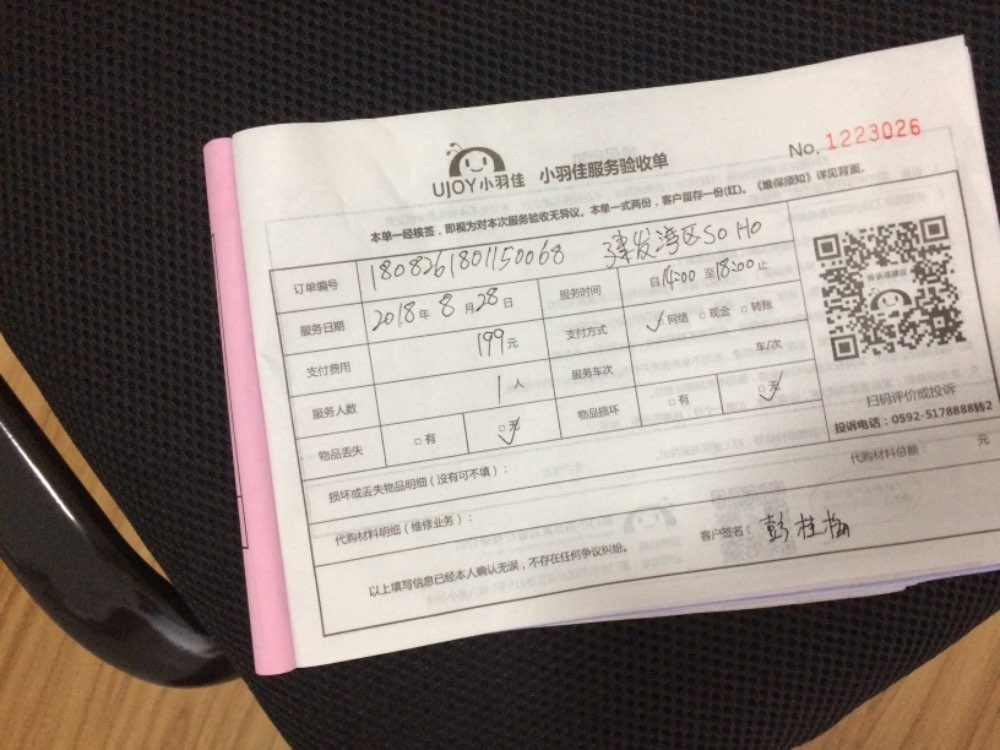 UJOY小羽佳 小羽佳服务验收单 No. 1223026
本单一经核签，即视为对本次服务验收无异议。本单一式两份，客户留存一份(红)。《维保须知》详见背面。
订单编号 1808261801150068 建发湾区SOHO
服务日期 2018年8月28日 服务时间 自14:00至18:00止
支付费用 199元 支付方式 ✓网络 □现金 □转账
服务人数 1人 服务车次 车/次
物品丢失 □有 □无✓ 物品损坏 □有 □无✓
投诉或建议
扫码评价或投诉
投诉电话：0592-5178888转2
损坏或丢失物品明细（没有可不填）：
代购材料明细（维修业务）： 代购材料总额： 元
以上填写信息已经本人确认无误，不存在任何争议纠纷。 客户签名：彭桂梅